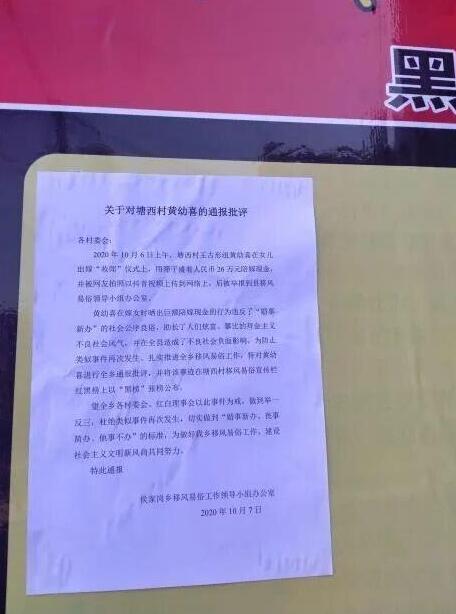 黑
关于对塘西村黄幼喜的通报批评
各村委会：
2020年10月6日上午，塘西村王古形组黄幼喜在女儿
出嫁“收郎”仪式上，用筛子盛着人民币26万元陪嫁现金，
并被网友拍照以抖音视频上传到网络上，后被举报到县移风
易俗领导小组办公室。
黄幼喜在嫁女时晒出巨额陪嫁现金的行为违反了“婚事
新办”的社会公序良俗，助长了人们炫富、攀比的拜金主义
不良社会风气，并在全县造成了不良社会负面影响，为防止
类似事件再次发生、扎实推进全乡移风易俗工作，特对黄幼
喜进行全乡通报批评，并将该事迹在塘西村移风易俗宣传栏
红黑榜上以“黑榜”张榜公布。
望全乡各村委会、红白理事会以此事件为戒，做到举一
反三，杜绝类似事件再次发生，切实做到“婚事新办、丧事
简办、他事不办”的标准，为做好我乡移风易俗工作，建设
社会主义文明新风尚共同努力。
特此通报
侯家岗乡移风易俗工作领导小组办公室
2020年10月7日